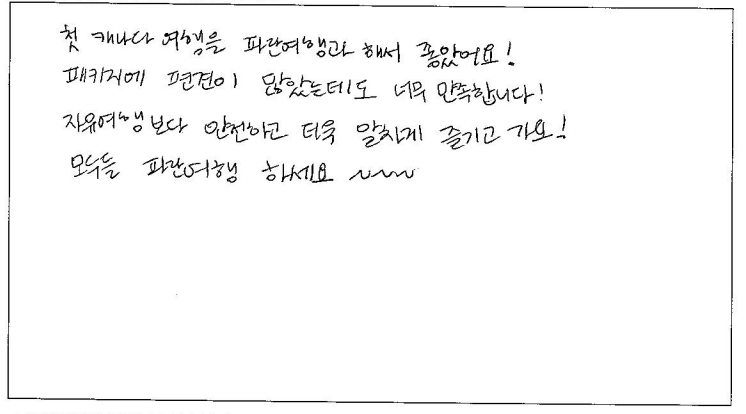 첫 캐나다 여행을 파란여행과 해서 좋았어요!
패키지에 편견이 많았는데도 너무 만족합니다!
자유여행보다 안전하고 더욱 알차게 즐기고 가요!
모두들 파란여행 하세요 ~~~